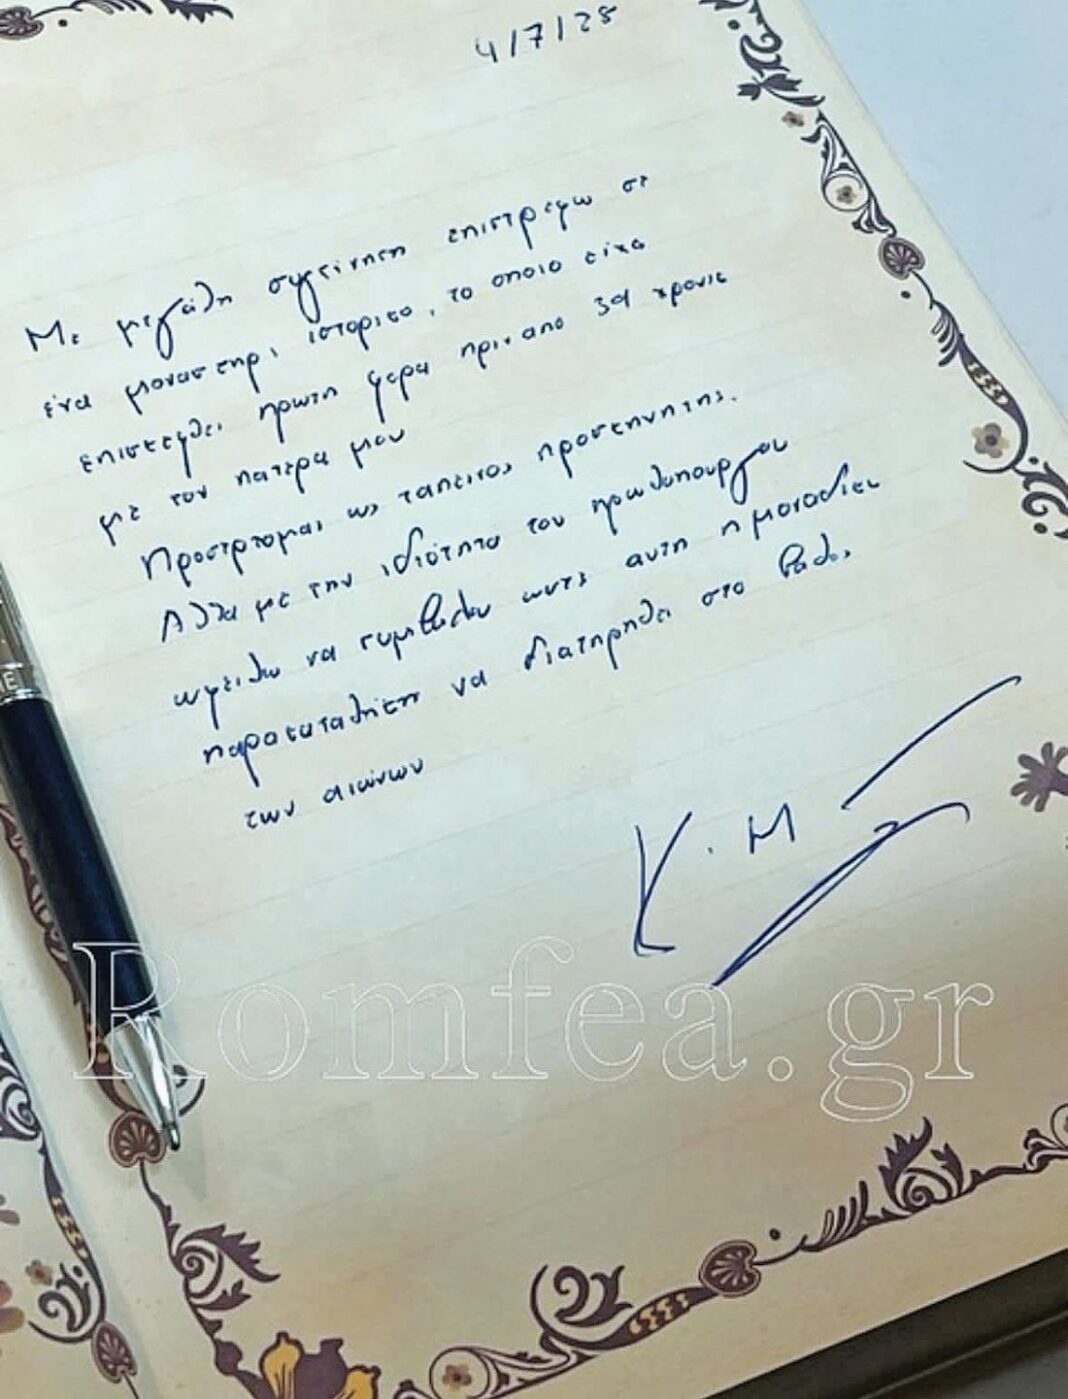 4/7/25
Με μεγάλη συγκίνηση επιστρέφω σε
ένα μοναστήρι ιστορικο, το οποιο είχα
επισκεφθει πρωτη φορα πριν απο 39 χρονια
με τον πατερα μου
Προσερχομαι ως ταπεινος προσκυνητης.
Αλλα με την ιδιότητα του πρωθυπουργου
οφειλω να συμβαλω ωστε αυτη η μοναδικη
παρακαταθηκη να διατηρηθει στο βαθος
των αιώνων
Κ. Μ
E
Romfea.gr